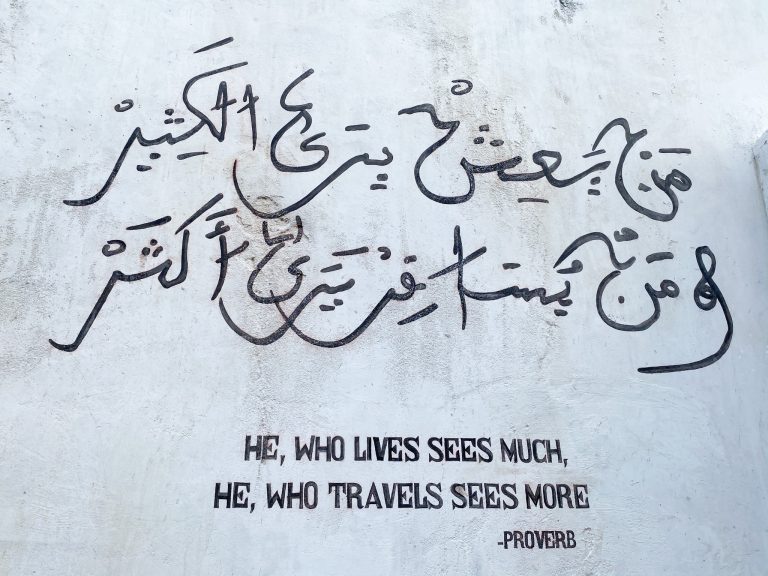 مَن يَعِيشْ يرىٰ الكَثِيرْ
ومَن يُسَافِرْ يَرىٰ أَكثَرْ
HE, WHO LIVES SEES MUCH,
HE, WHO TRAVELS SEES MORE
-PROVERB